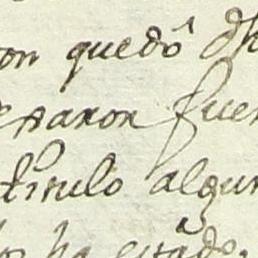 on quedô dh
esaron fuer
titulo algun
ha estado.